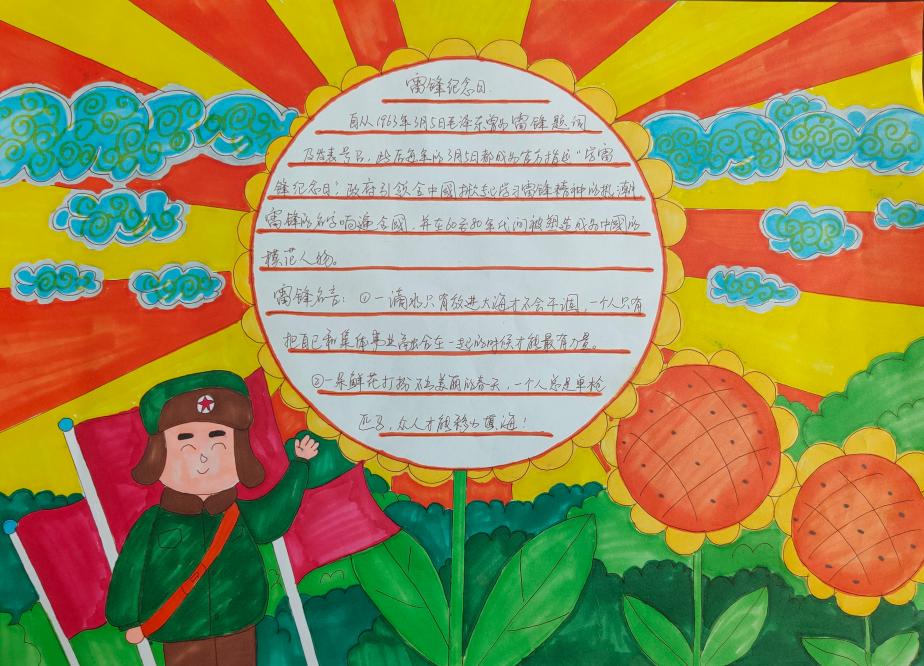 雷锋纪念日
自从1963年3月5日毛泽东为雷锋题词
及发表号召,此后每年的3月5日都成为官方指定"学雷
锋纪念日",政府引领全中國掀起学习雷锋精神的热潮
雷锋的名字响遍全國,并在60至80年代间被塑造成为中國的
模范人物。
雷锋名言:①一滴水只有放进大海才不会干涸,一个人只有
把自己和集体事业融合在一起的时候才能最有力量。
②一朵鲜花打扮不出美丽的春天,一个人总是单枪
匹马,众人才能移山填海!